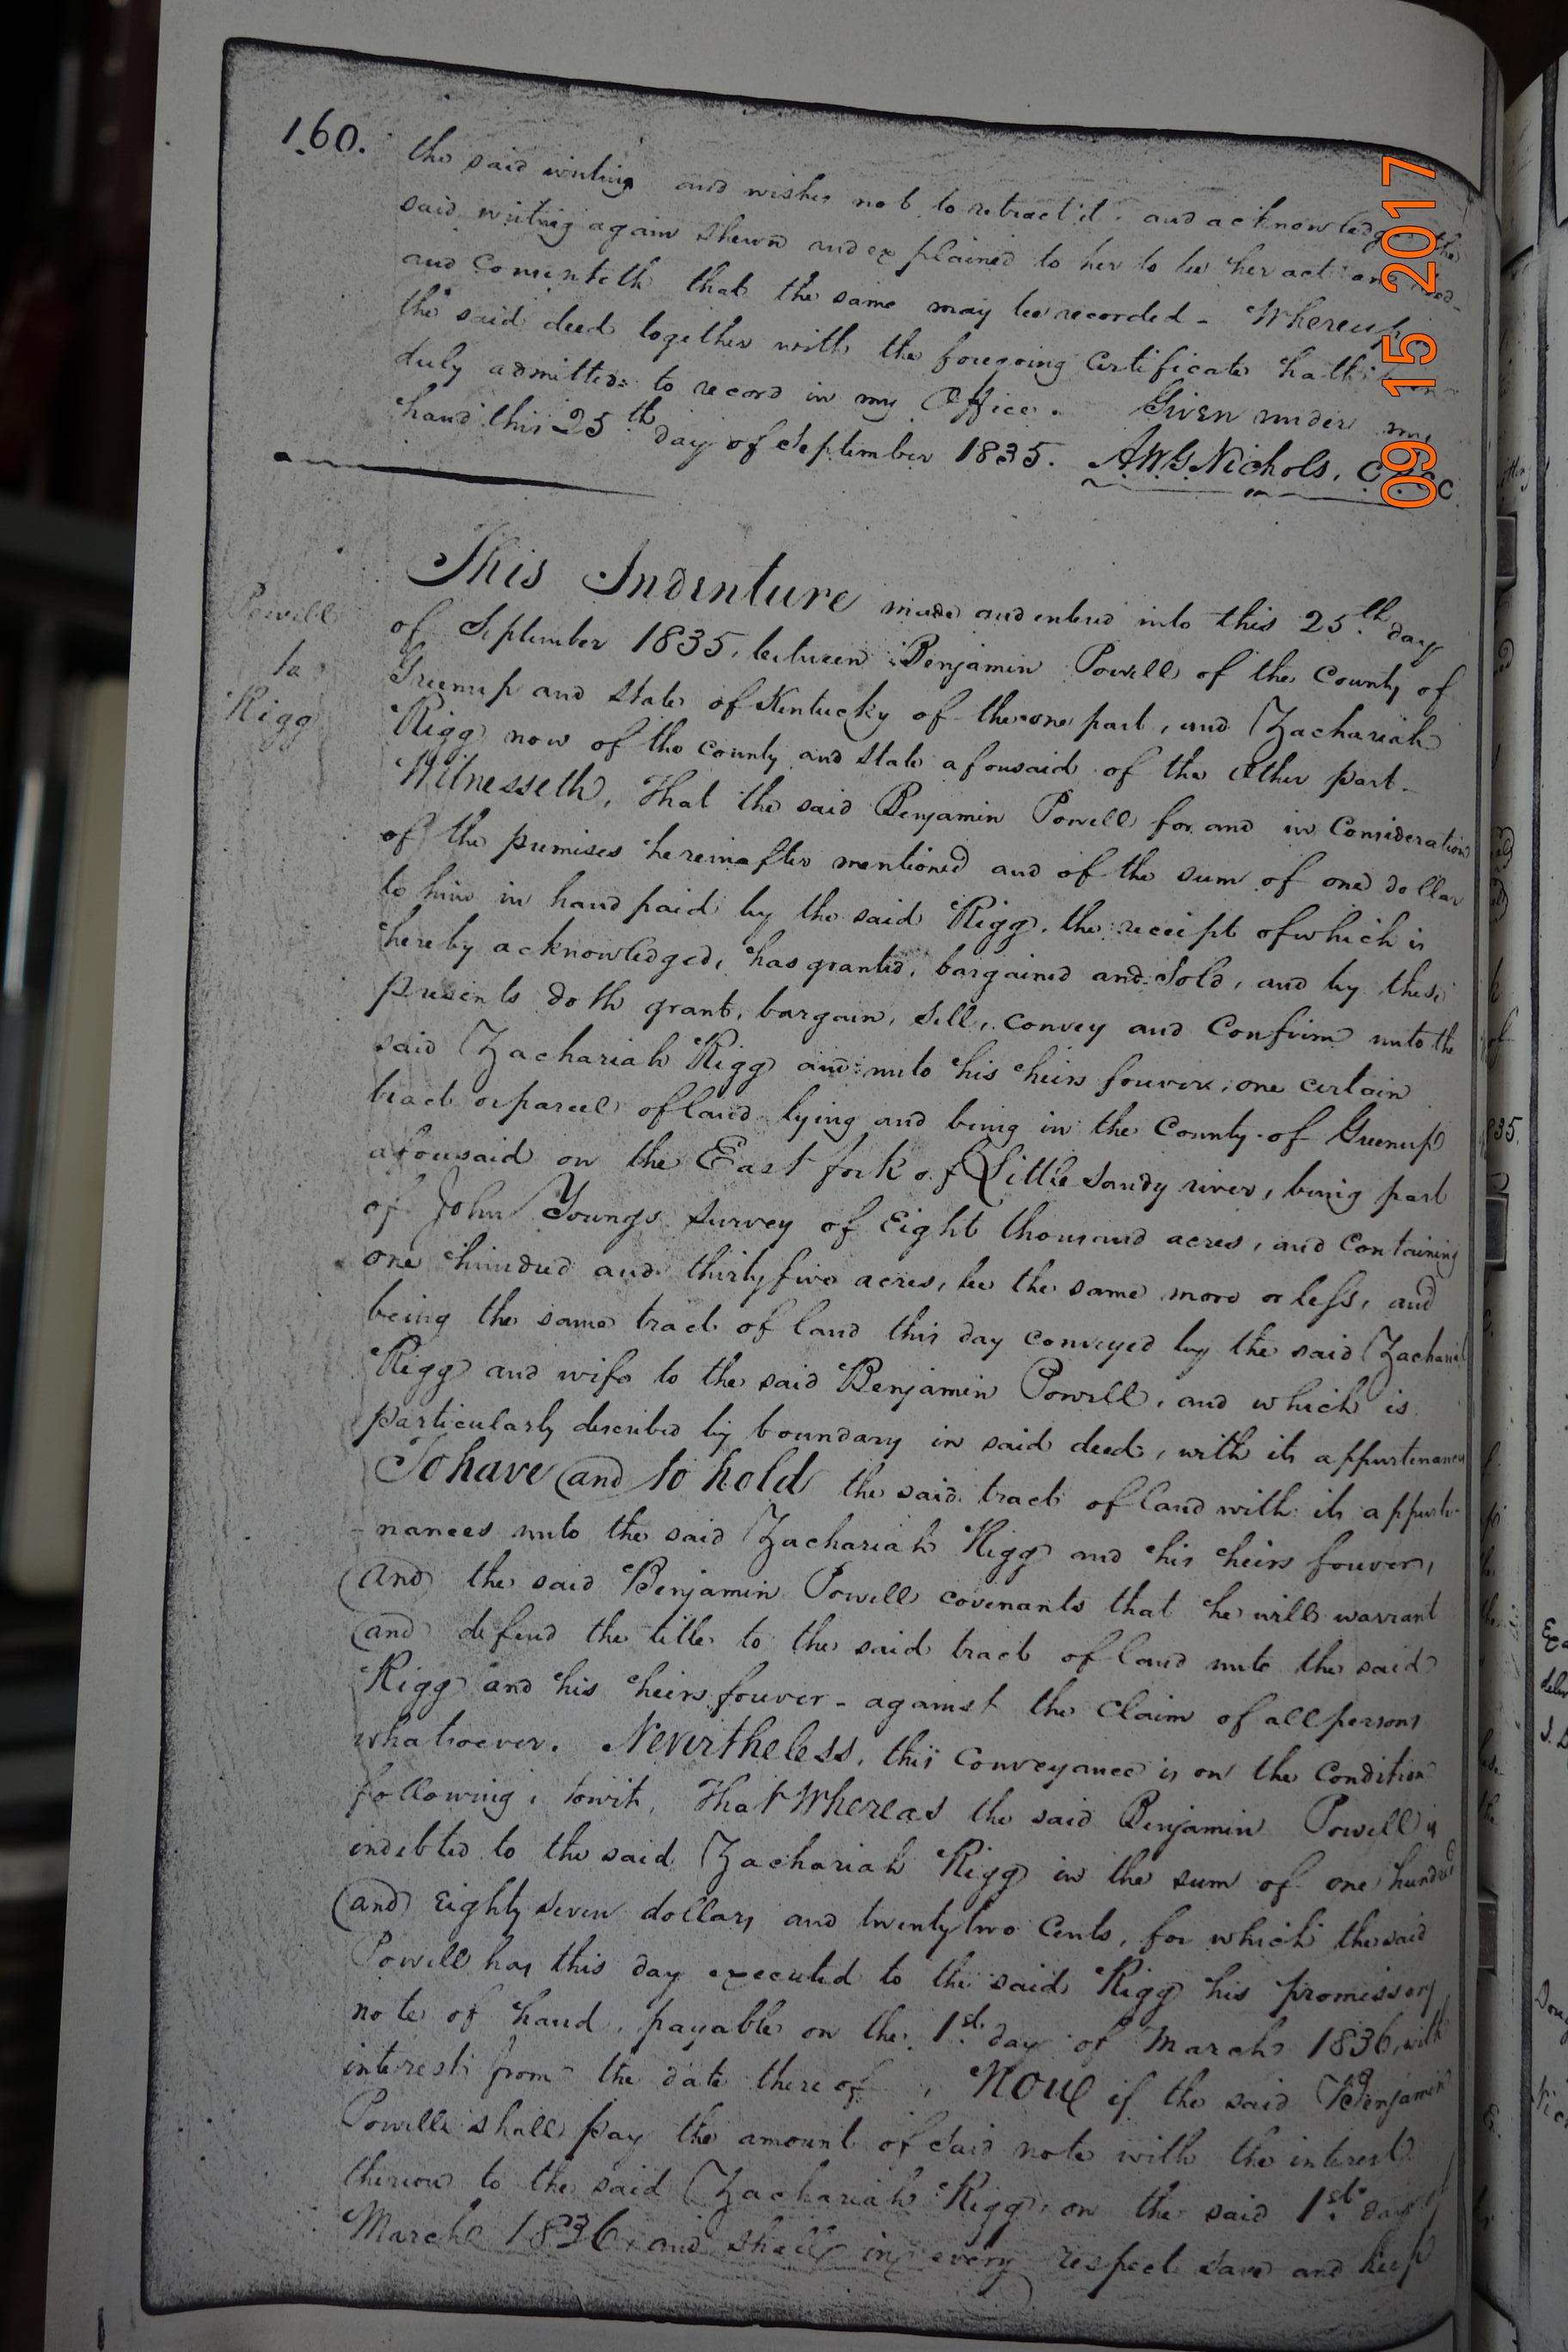 160.
the said writing and wishes not to retract it, and acknowledges the
said writing again shewn and explained to her to be her act and
and consenteth that the same may be recorded - Whereupon
the said deed together with the foregoing Certificate hath been
duly admitted to record in my Office. Given under my
hand this 25th day of September 1835. A.W.G Nichols,
09 15 2017
Powell
to
Rigg
This Indenture made and entered into this 25th day
of September 1835, between Benjamin Powell of the County of
Greenup and State of Kentucky of the one part, and Zachariah
Rigg now of the county and state aforesaid of the Other part -
Witnesseth, That the said Benjamin Powell for and in Consideration
of the premises hereinafter mentioned and of the sum of one dollar
to him in hand paid by the said Rigg, the receipt of which is
hereby acknowledged, has granted, bargained and Sold, and by these
presents doth grant, bargain, sell, convey and Confirm unto the
said Zachariah Rigg and unto his heirs forever, one certain
tract or parcel of land lying and being in the County of Greenup
aforesaid on the East fork of Little Sandy river, being part
of John Youngs survey of Eight thousand acres, and Containing
one hundred and thirty five acres, be the same more or less, and
being the same tract of land this day conveyed by the said Zachariah
Rigg and wife to the said Benjamin Powell, and which is
particularly described by boundary in said deed, with its appurtenances
To have and to hold the said tract of land with its appurte-
-nances unto the said Zachariah Rigg and his heirs forever,
and the said Benjamin Powell covenants that he will warrant
and defend the title to the said tract of land unto the said
Rigg and his heirs forever - against the Claim of all persons
whatsoever. Nevertheless, this Conveyance is on the Condition
following, towit, That Whereas the said Benjamin Powell is
indebted to the said Zachariah Rigg in the sum of one hundred
and Eighty seven dollars and twenty two Cents, for which the said
Powell has this day executed to the said Rigg his promissory
note of hand, payable on the 1st day of March 1836, with
interest from the date thereof, Now if the said Benjamin
Powell shall pay the amount of said note with the interest
thereon to the said Zachariah Rigg, on the said 1st day of
March 1836, and shall in every respect save and keep